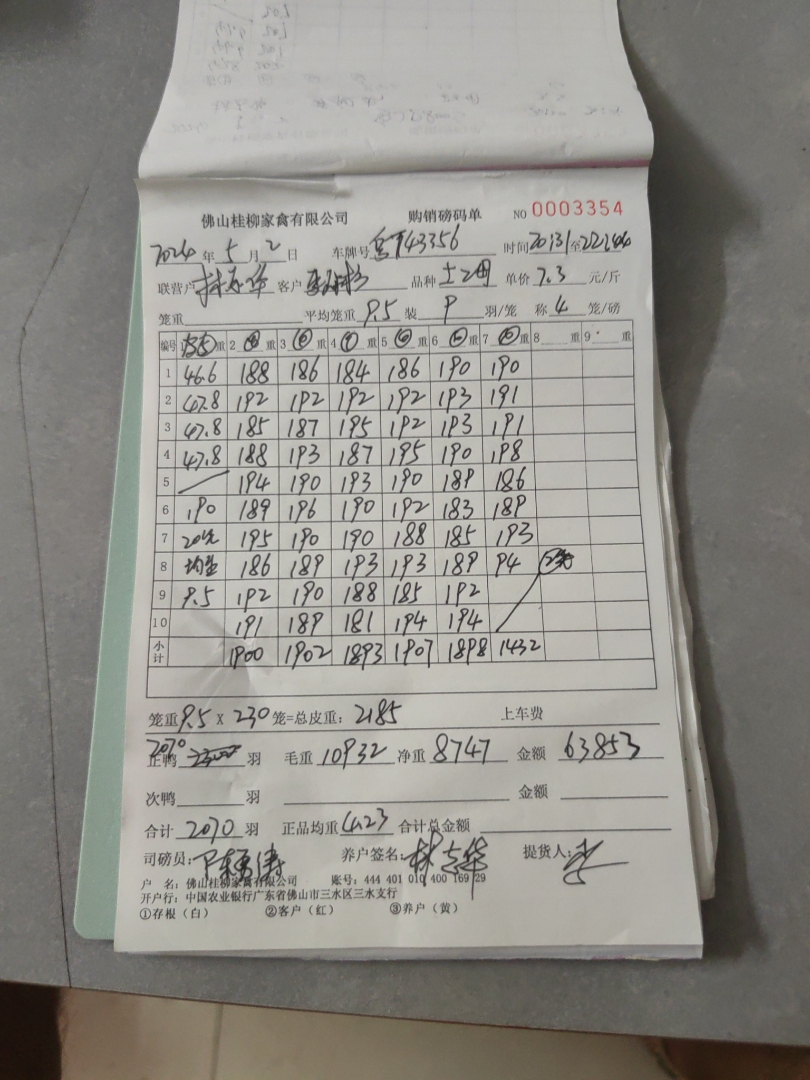 佛山桂柳家禽有限公司 购销磅码单 NO 0003354
2024 年 5 月 2 日 车牌号 43356 时间 20:31 至 22:
联营户 林志华 客户 品种 土2母 单价 7.3 元/斤
笼重 平均笼重 9.5 装 9 羽/笼 称 4 笼/磅
编号 重 2 重 3 重 4 重 5 重 6 重 7 重 8 重 9 重
1 46.6 188 186 184 186 190 190
2 47.8 192 192 192 192 193 191
3 47.8 185 187 195 192 193 191
4 47.8 188 193 187 195 190 198
5 194 190 193 190 189 186
6 190 189 196 190 192 183 189
7 20笼 195 190 190 188 185 193
8 均重 186 189 193 193 189 94 2笼
9 9.5 192 190 188 185 192
10 191 189 181 194 194
小计 1900 1902 1893 1907 1898 1432
笼重 9.5 X 230 笼=总皮重: 2185 上车费
正鸭 2070 羽 毛重 10932 净重 8747 金额 63853
次鸭 羽 金额
合计 2070 羽 正品均重 4.23 合计总金额
司磅员: 养户签名: 林志华 提货人:
户 名: 佛山桂柳家禽有限公司 账号: 444 401 010 400 169 29
开户行: 中国农业银行广东省佛山市三水区三水支行
①存根(白) ②客户(红) ③养户(黄)